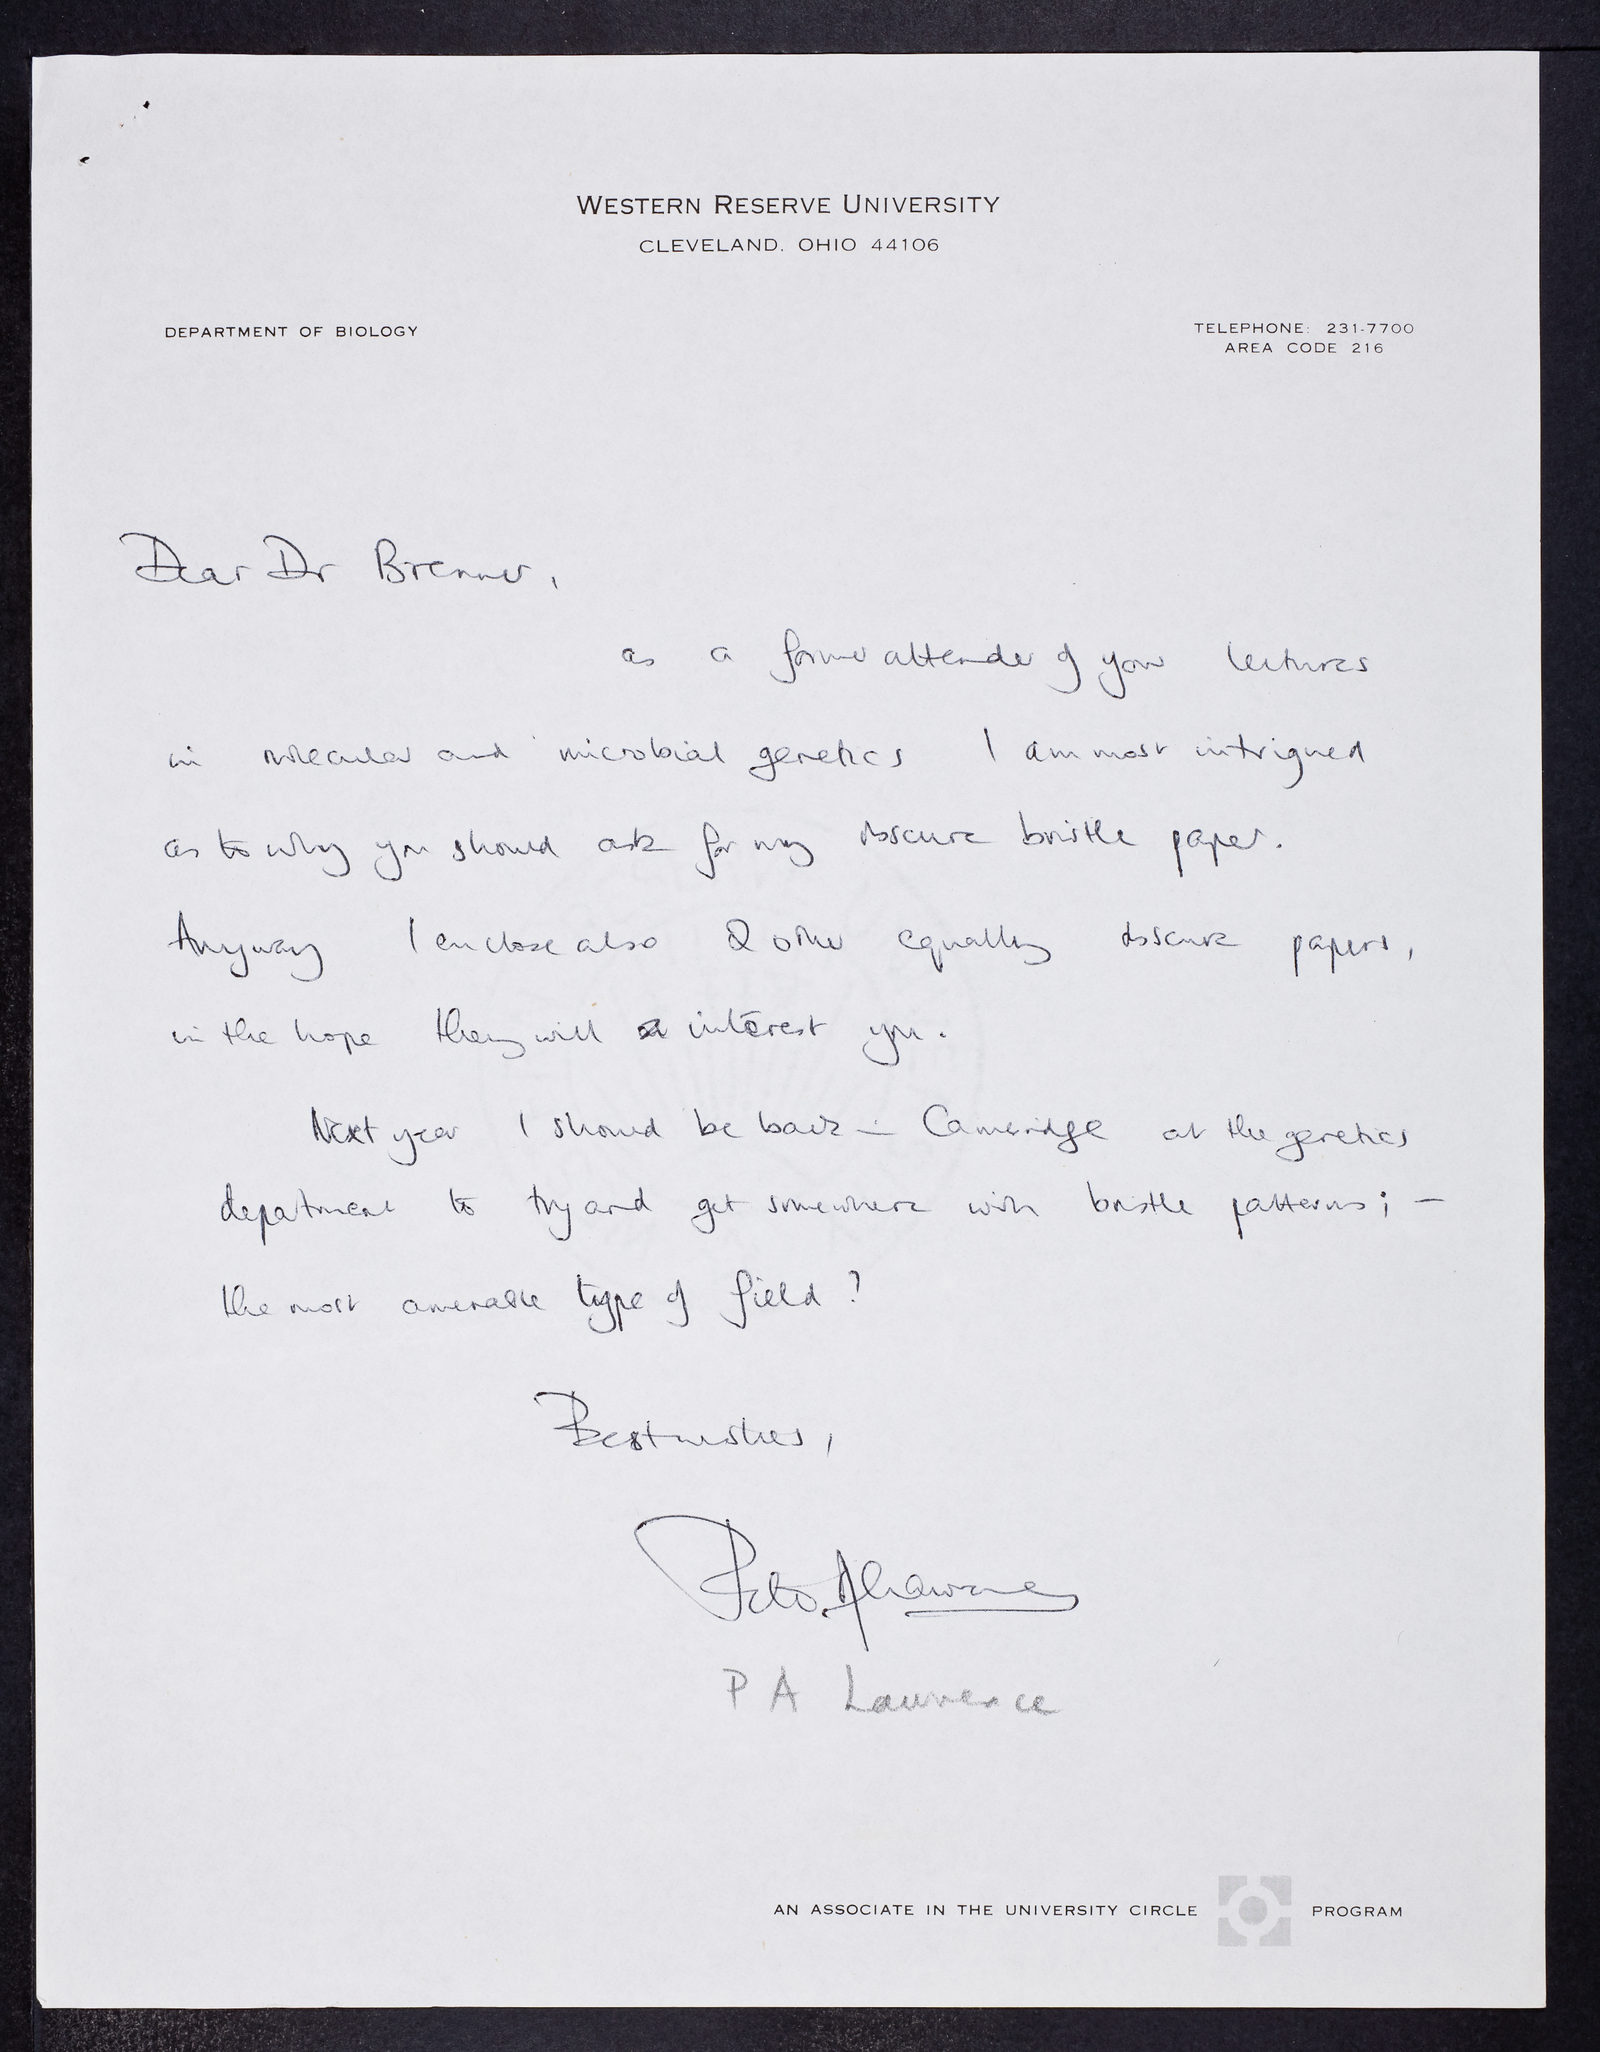 WESTERN RESERVE UNIVERSITY
CLEVELAND, OHIO 44106
DEPARTMENT OF BIOLOGY
TELEPHONE: 231-7700
AREA CODE 216
Dear Dr Brenner,
as a former attender of your lectures
in molecular and microbial genetics I am most intrigued
as to why you should ask for my obscure bristle paper.
Anyway I enclose also 2 other equally obscure papers,
in the hope they will interest you.
Next year I should be back in Cambridge at the genetics
department to try and get somewhere with bristle patterns; —
the most amenable type of field?
Best wishes,
Peter A Lawrence
P A Lawrence
AN ASSOCIATE IN THE UNIVERSITY CIRCLE PROGRAM